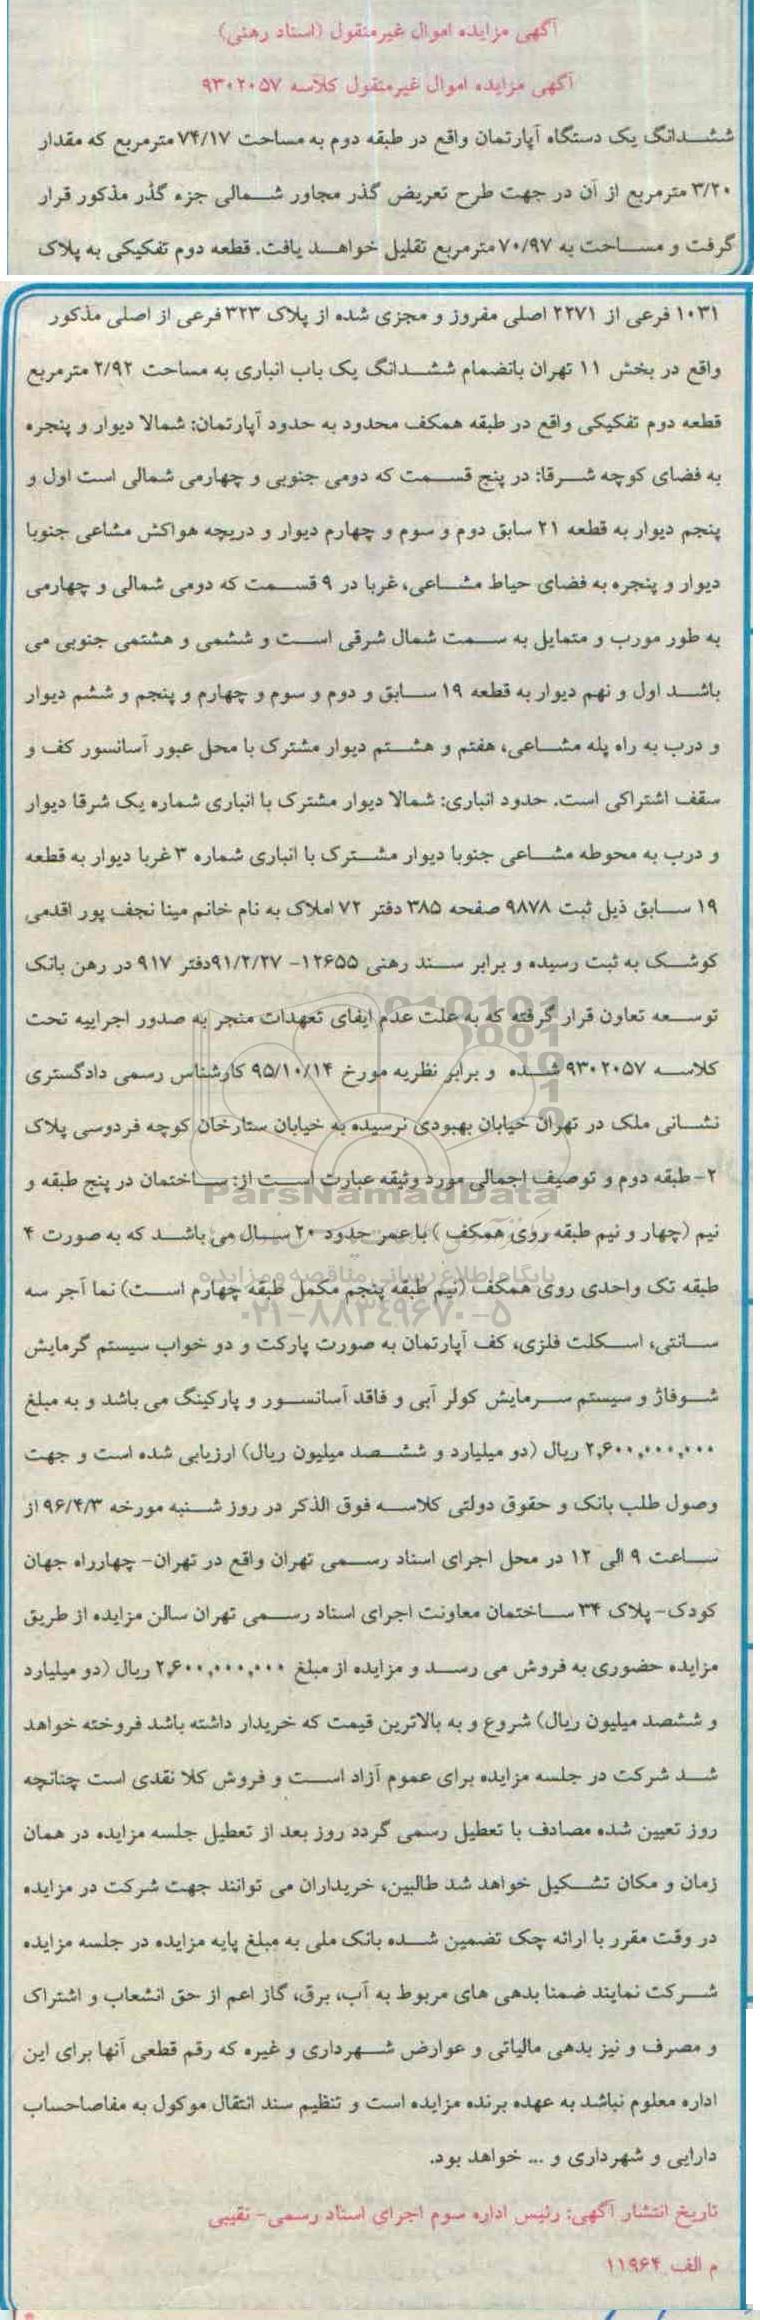 آگهی مزایده اموال غیرمنقول (اسناد رهنی)
آگهی مزایده اموال غیرمنقول کلاسه ۹۳۰۲۰۵۷
ششدانگ یک دستگاه آپارتمان واقع در طبقه دوم به مساحت ۷۴/۱۷ مترمربع که مقدار
۳/۲۰ مترمربع از آن در جهت طرح تعریض گذر مجاور شمالی جزء گذر مذکور قرار
گرفت و مساحت به ۷۰/۹۷ مترمربع تقلیل خواهد یافت. قطعه دوم تفکیکی به پلاک
۱۰۳۱ فرعی از ۲۲۷۱ اصلی مفروز و مجزی شده از پلاک ۳۲۳ فرعی از اصلی مذکور
واقع در بخش ۱۱ تهران بانضمام ششدانگ یک باب انباری به مساحت ۲/۹۲ مترمربع
قطعه دوم تفکیکی واقع در طبقه همکف محدود به حدود آپارتمان: شمالا دیوار و پنجره
به فضای کوچه شرقا: در پنج قسمت که دومی جنوبی و چهارمی شمالی است اول و
پنجم دیوار به قطعه ۲۱ سابق دوم و سوم و چهارم دیوار و دریچه هواکش مشاعی جنوبا
دیوار و پنجره به فضای حیاط مشاعی، غربا در ۹ قسمت که دومی شمالی و چهارمی
به طور مورب و متمایل به سمت شمال شرقی است و ششمی و هشتمی جنوبی می
باشد اول و نهم دیوار به قطعه ۱۹ سابق و دوم و سوم و چهارم و پنجم و ششم دیوار
و درب به راه پله مشاعی، هفتم و هشتم دیوار مشترک با محل عبور آسانسور کف و
سقف اشتراکی است. حدود انباری: شمالا دیوار مشترک با انباری شماره یک شرقا دیوار
و درب به محوطه مشاعی جنوبا دیوار مشترک با انباری شماره ۳ غربا دیوار به قطعه
۱۹ سابق ذیل ثبت ۹۸۷۸ صفحه ۳۸۵ دفتر ۷۲ املاک به نام خانم مینا نجف پور اقدمی
کوشک به ثبت رسیده و برابر سند رهنی ۱۲۶۵۵- ۹۱/۲/۲۷دفتر ۹۱۷ در رهن بانک
توسعه تعاون قرار گرفته که به علت عدم ایفای تعهدات منجر به صدور اجراییه تحت
کلاسه ۹۳۰۲۰۵۷ شده و برابر نظریه مورخ ۹۵/۱۰/۱۴ کارشناس رسمی دادگستری
نشانی ملک در تهران خیابان بهبودی نرسیده به خیابان ستارخان کوچه فردوسی پلاک
۲- طبقه دوم و توصیف اجمالی مورد وثیقه عبارت است از: ساختمان در پنج طبقه و
ParsNamadData
نیم (چهار و نیم طبقه روی همکف ) با عمر حدود ۲۰ سال می باشد که به صورت ۴
پایگاه اطلاع رسانی مناقصه و مزایده
طبقه تک واحدی روی همکف (نیم طبقه پنجم مکمل طبقه چهارم است) نما آجر سه
۰۲۱-۸۸۳۴۹۶۷۰-۵
سانتی، اسکلت فلزی، کف آپارتمان به صورت پارکت و دو خواب سیستم گرمایش
شوفاژ و سیستم سرمایش کولر آبی و فاقد آسانسور و پارکینگ می باشد و به مبلغ
۲,۶۰۰,۰۰۰,۰۰۰ ریال (دو میلیارد و ششصد میلیون ریال) ارزیابی شده است و جهت
وصول طلب بانک و حقوق دولتی کلاسه فوق الذکر در روز شنبه مورخه ۹۶/۴/۳ از
ساعت ۹ الی ۱۲ در محل اجرای اسناد رسمی تهران واقع در تهران- چهارراه جهان
کودک- پلاک ۳۴ ساختمان معاونت اجرای اسناد رسمی تهران سالن مزایده از طریق
مزایده حضوری به فروش می رسد و مزایده از مبلغ ۲,۶۰۰,۰۰۰,۰۰۰ ریال (دو میلیارد
و ششصد میلیون ریال) شروع و به بالاترین قیمت که خریدار داشته باشد فروخته خواهد
شد شرکت در جلسه مزایده برای عموم آزاد است و فروش کلا نقدی است چنانچه
روز تعیین شده مصادف با تعطیل رسمی گردد روز بعد از تعطیل جلسه مزایده در همان
زمان و مکان تشکیل خواهد شد طالبین، خریداران می توانند جهت شرکت در مزایده
در وقت مقرر با ارائه چک تضمین شده بانک ملی به مبلغ پایه مزایده در جلسه مزایده
شرکت نمایند ضمنا بدهی های مربوط به آب، برق، گاز اعم از حق انشعاب و اشتراک
و مصرف و نیز بدهی مالیاتی و عوارض شهرداری و غیره که رقم قطعی آنها برای این
اداره معلوم نباشد به عهده برنده مزایده است و تنظیم سند انتقال موکول به مفاصاحساب
دارایی و شهرداری و ... خواهد بود.
تاریخ انتشار آگهی: رئیس اداره سوم اجرای اسناد رسمی- نقیبی
م الف ۱۱۹۶۴